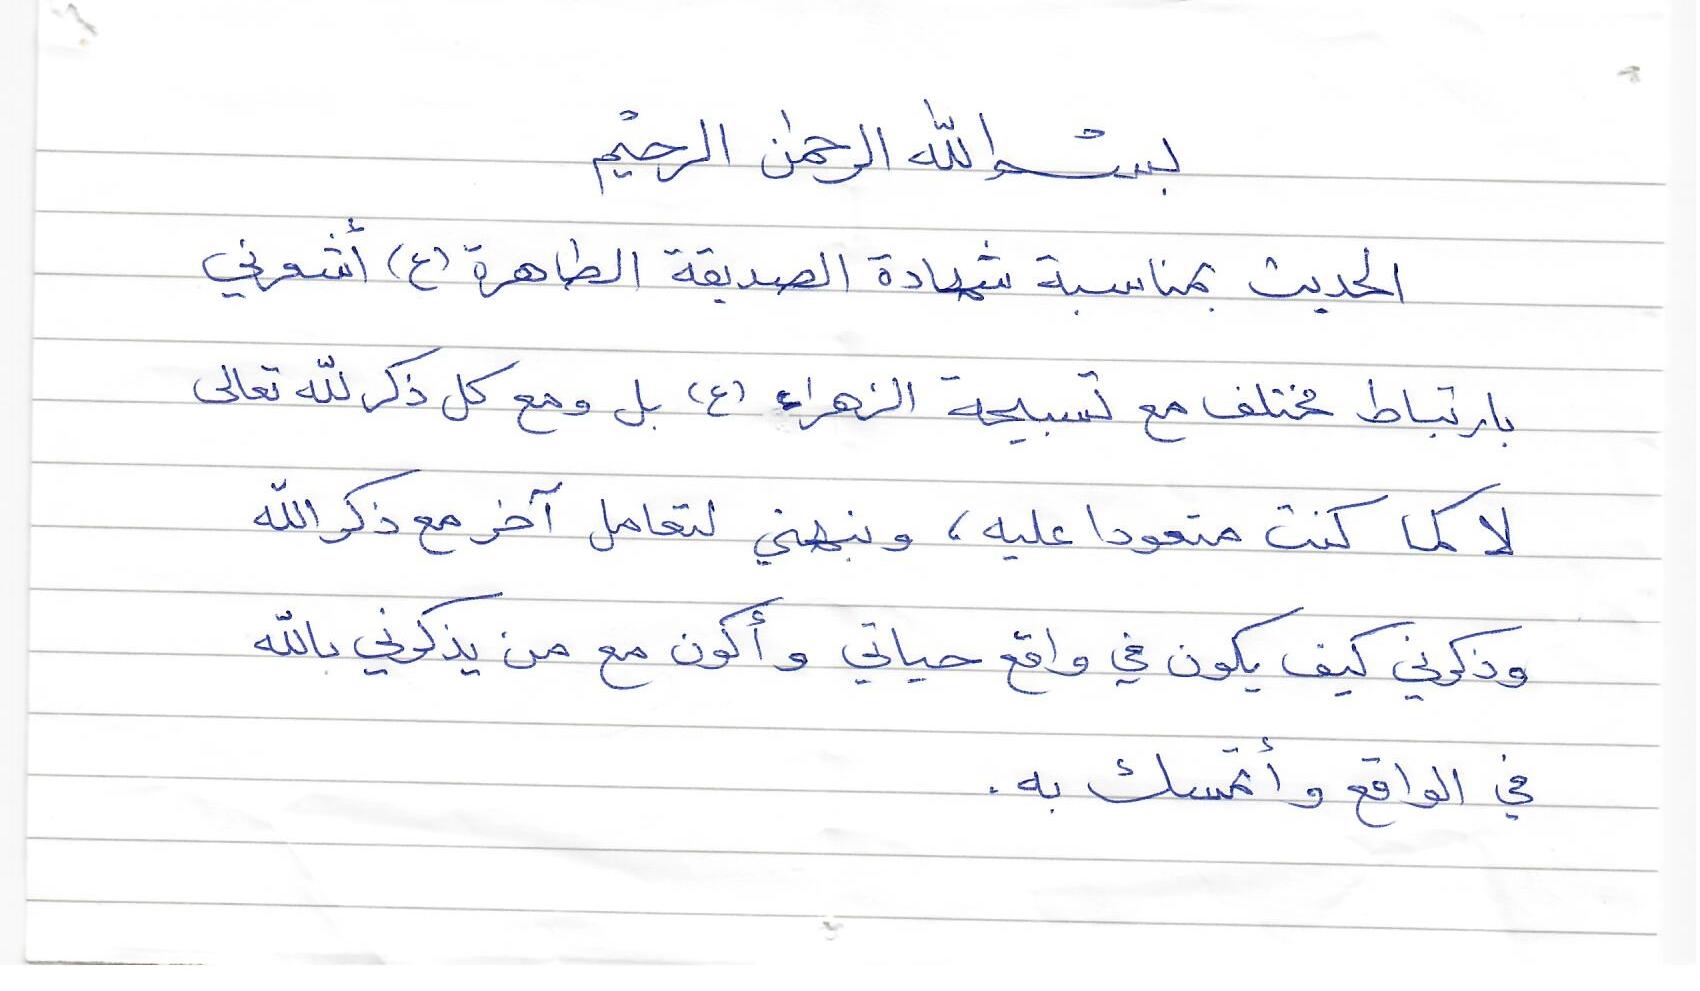 بسم الله الرحمن الرحيم
الحديث بمناسبة شهادة الصديقة الطاهرة (ع) أشعرني
بارتباط مختلف مع تسبيحة الزهراء (ع) بل ومع كل ذكر لله تعالى
لا كما كنت متعودا عليه، ونبهني لتعامل آخر مع ذكر الله
وذكرني كيف يكون في واقع حياتي وأكون مع من يذكرني بالله
في الواقع وأتمسك به.